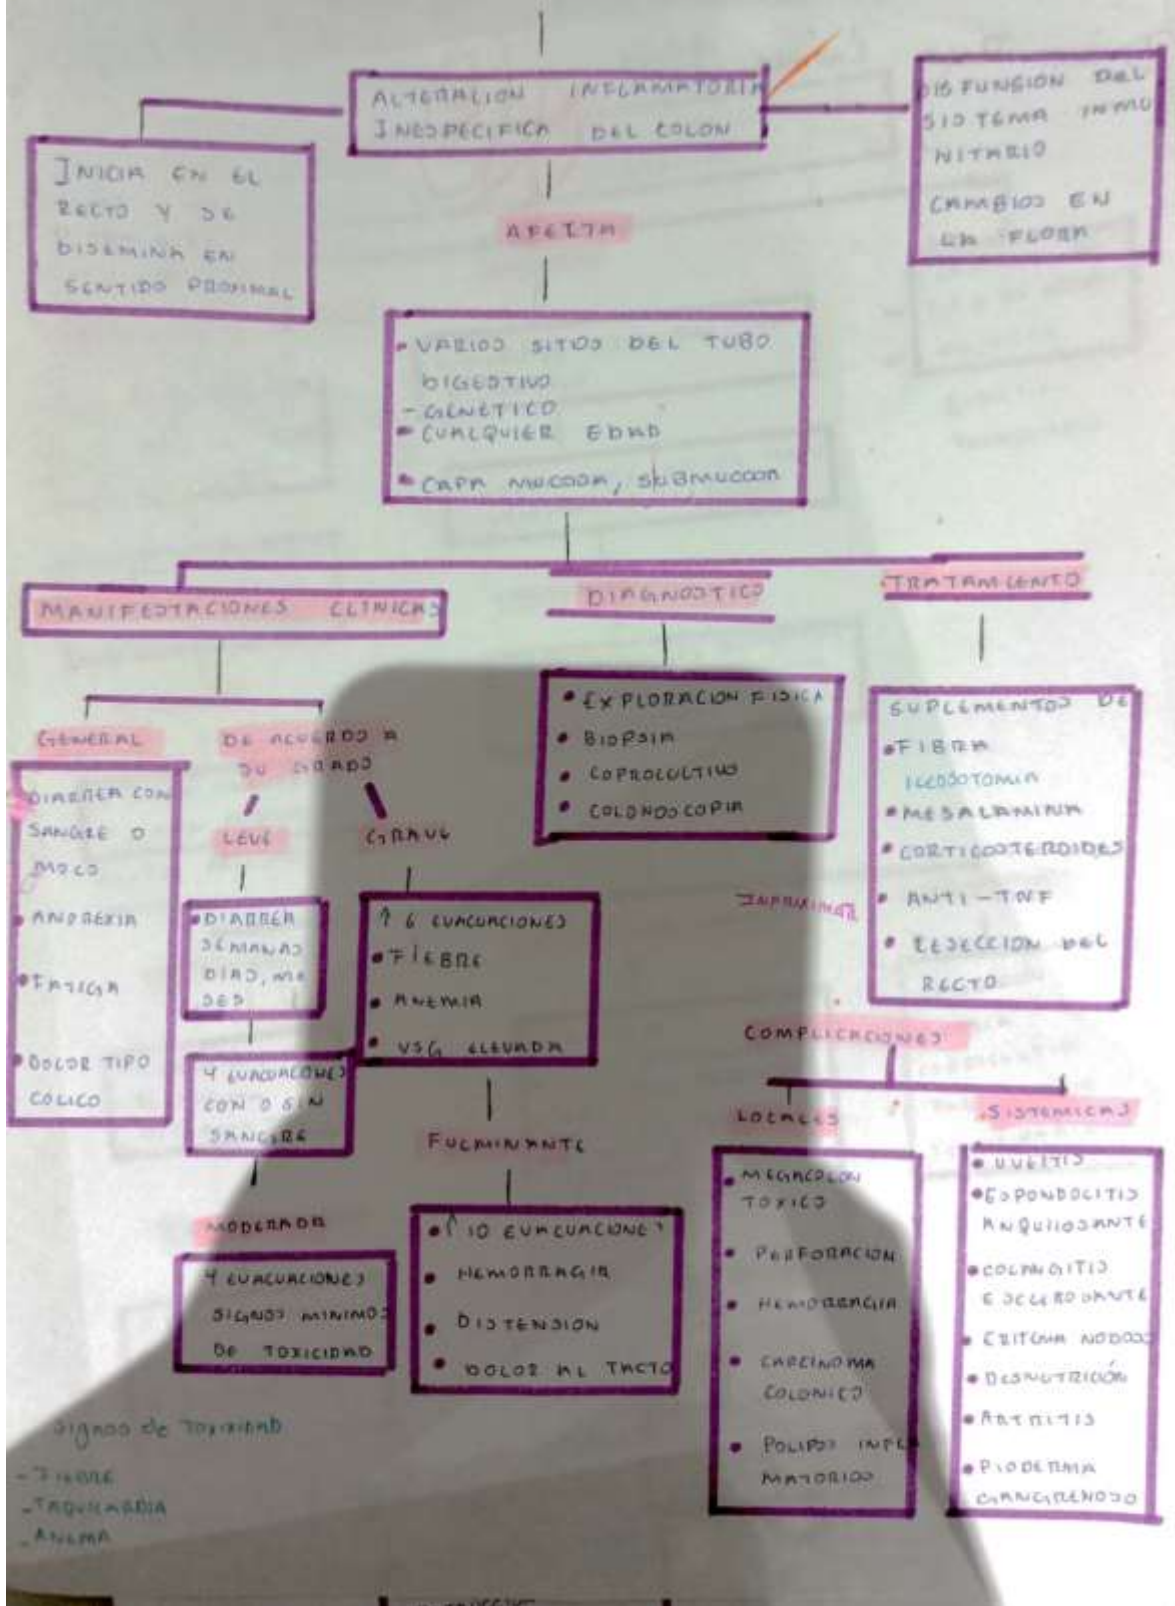 ALTERACION INFLAMATORIA
INESPECIFICA DEL COLON
INICIA EN EL
RECTO Y SE
DISEMINA EN
SENTIDO PROXIMAL
DISFUNSION DEL
SISTEMA INMU
NITARIO
CAMBIOS EN
LA FLORA
AFECTA
• VARIOS SITIOS DEL TUBO
DIGESTIVO
- GENETICO
• CUALQUIER EDAD
• CAPA MUCOSA, SUBMUCOSA
MANIFESTACIONES CLINICAS
DIAGNOSTICO
TRATAMIENTO
GENERAL
DIARREA CON
SANGRE O
MOCO
• ANOREXIA
• FATIGA
• DOLOR TIPO
COLICO
DE ACUERDO A
SU GRADO
LEVE
• DIARREA
SEMANAS
DIAS, ME
SES
4 EVACUACIONES
CON O SIN
SANGRE
MODERADA
4 EVACUACIONES
SIGNOS MINIMOS
DE TOXICIDAD
GRAVE
↑ 6 EVACUACIONES
• FIEBRE
• ANEMIA
• VSG ELEVADA
FULMINANTE
• ↑ 10 EVACUACIONES
• HEMORRAGIA
• DISTENSION
• DOLOR AL TACTO
• EXPLORACION FISICA
• BIOPSIA
• COPROCULTIVO
• COLONOSCOPIA
SUPLEMENTOS DE
• FIBRA
ILEOSOTOMIA
• MESALAMINA
• CORTICOSTEROIDES
• ANTI-TNF
• RESECCION DEL
RECTO
COMPLICACIONES
LOCALES
• MEGACOLON
TOXICO
• PERFORACION
• HEMORRAGIA
• CARCINOMA
COLONICO
• POLIPOS INFLA
MATORIOS
SISTEMICAS
• UVEITIS
• ESPONDOLITIS
ANQUILOSANTE
• COLANGITIS
ESCLEROSANTE
• ERITEMA NODOSO
• DESNUTRICIÓN
• ARTRITIS
• PIODERMA
GANGRENOSO
Signos de TOXICIDAD
- FIEBRE
- TAQUICARDIA
- ANEMIA